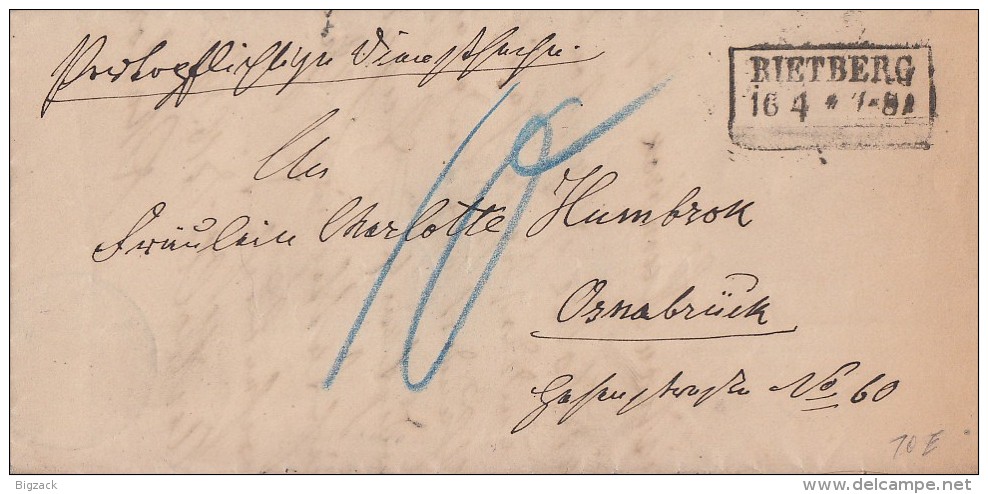 Portopflichtige Dienstsache.
RIETBERG
16 4 7-8
10
An
Fräulein Charlotte Humbrok
Osnabrück
No 60
10 E
Bigzack delcampe.net